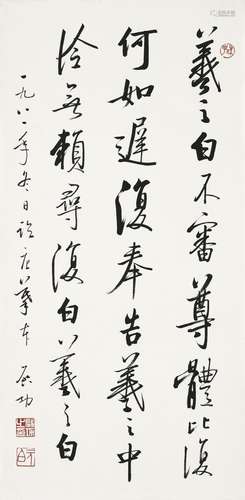 羲之白不審尊體比復
何如遲復奉告羲之中
冷無賴尋復白羲之白
一九八年冬日臨唐摹本 启功